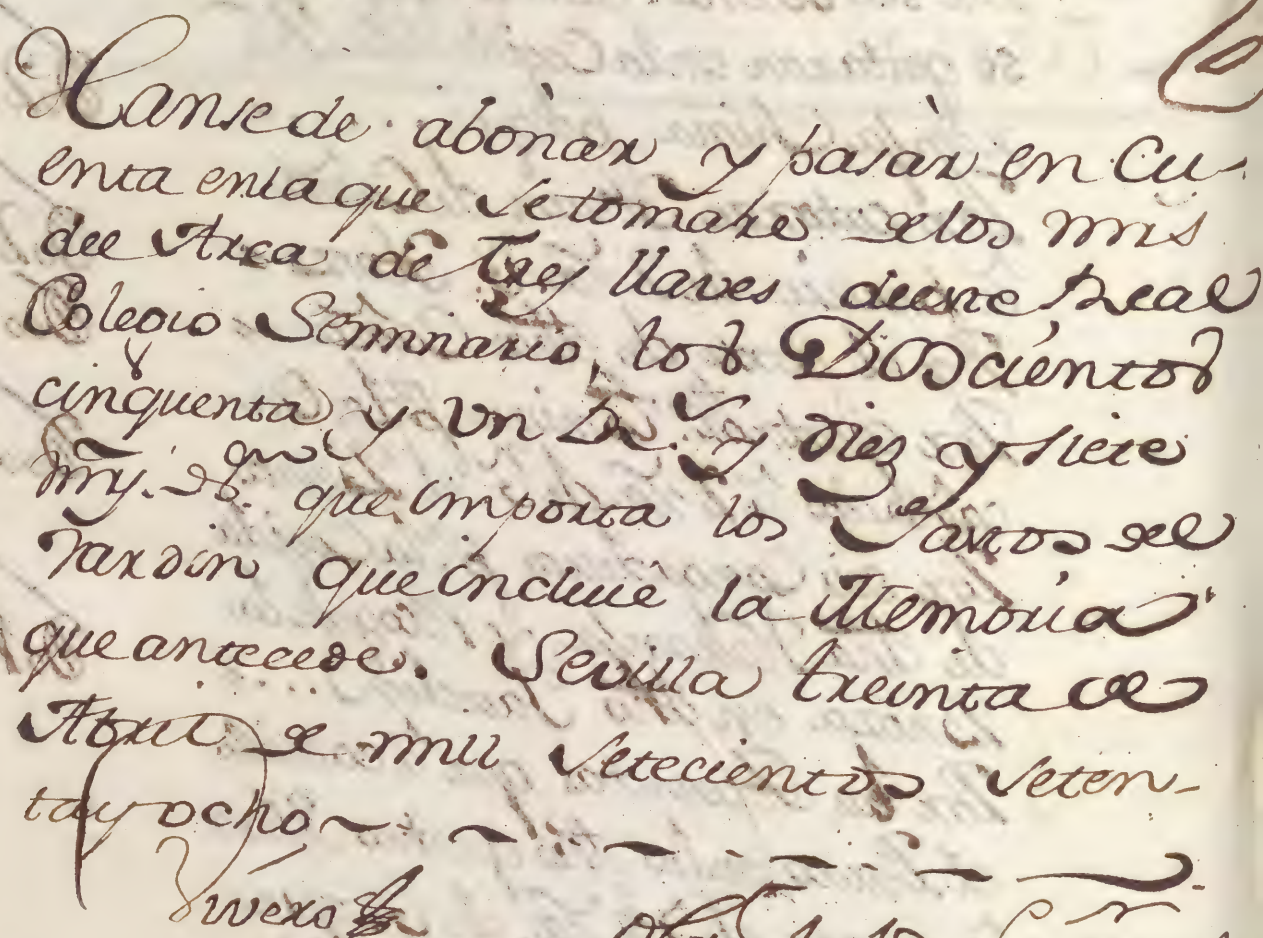 Hanse de abònar y pasàr en Cu-
enta en la que se tomare de los mrs
del Arca de Tres llaves de este Real
Colegio Seminario, los Doscientos
cinquenta y un Rs. y diez y siete
mrs. de vn que importa los Gastos del
Jardin que incluie la Memoria
que antecede. Sevilla treinta de
Abril de mill setecientos seten-
ta y ocho
Vivero